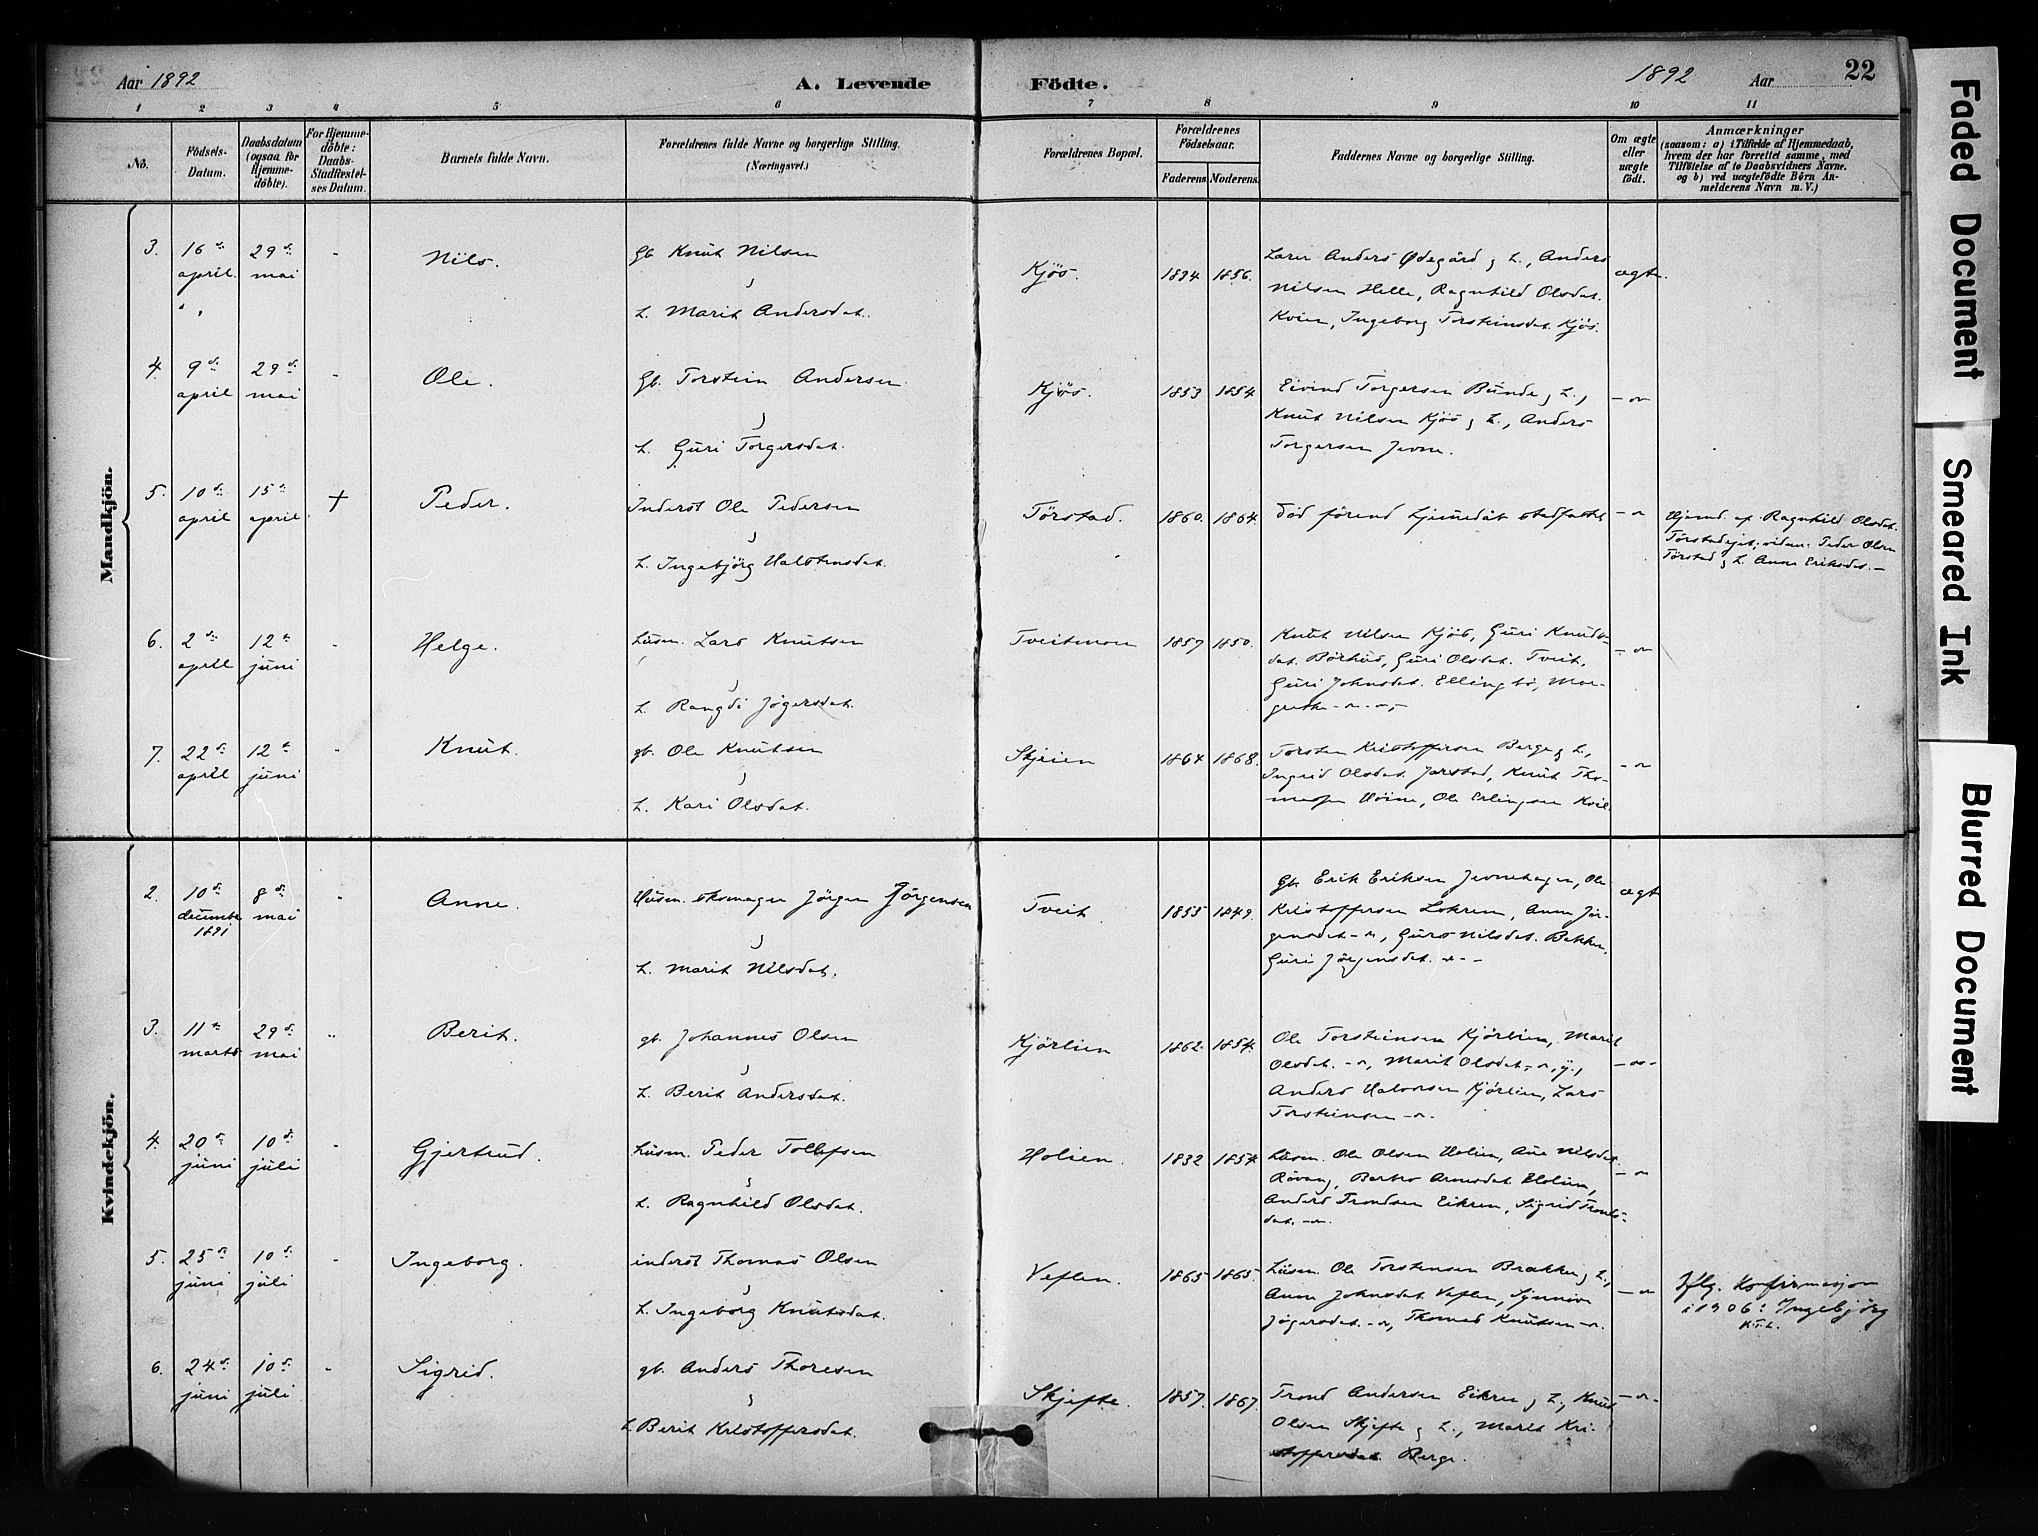 Aar 1892
A. Levende
Födte.
1892 Aar
22
1 2 3 4 5 6 7 8 9 10 11
No.
Födsels-
Datum.
Daabsdatum
(ogsaa for
Hjemme-
döbte).
For Hjemme-
döbte:
Daabs-
Stadfæstel-
ses Datum.
Barnets fulde Navn.
Forældrenes fulde Navne og borgerlige Stilling.
(Næringsvei.)
Forældrenes Bopæl.
Forældrenes
Födselsaar.
Faderens. Moderens.
Faddernes Navne og borgerlige Stilling.
Om ægte
eller
uægte
födt.
Anmærkninger
(saasom: a) i Tilfælde af Hjemmedaab,
hvem der har forrettet samme, med
Tilföielse af to Daabsvidners Navne.
og b) ved uægtefödte Börn An-
melderens Navn m. V.)
Mandkjön.
3. 16 april 29 mai - Nils. Gb. Knut Nilsen
L. Marit Andersdat.
Kjös. 1856.
Anders Ødegård & L., Anders
Nilsen Helle, Ragnhild Olsdat.
Kvien, Ingeborg Torsteinsdat. Kjös.
ægte.
4. 9 april 29 mai - Ole. Gb. Torstein Andersen
L. Guri Torgersdat.
Kjös. 1853 1854
Eivind Torgersen Bunde & L.,
Knut Nilsen Kjös & L., Anders
Torgersen Jevne.
5. 10 april 15 april + Peder. Inderst Ole Pedersen
L. Ingebjörg Halstensdat.
Törstad. 1860. 1864.
död förend hjemmedåb stadfæstet
Hjemd. af Ragnhild Olsdat.
Törstadejet; vidner: Peder Olsen
Törstad & L. Anne Eriksdat. —
6. 2 april 12 juni - Helge. Husm. Lars Knutsen
L. Rangdi Jögersdat.
Tveitmoen 1857 1850.
Knut Nilsen Kjös, Guri Knuds-
dat. Börhus, Guri Olsdat. Tveit,
Guri Johnsdat. Ellingbö, Mar-
grethe
7. 22 april 12 juni - Knut. gb. Ole Knutsen
L. Kari Olsdat.
Skjeien 1864 1868.
Torsten Kristoffersen Berge & L.,
Ingrid Olsdat. Jarstad, Knut Tho-
massen Höine, Ole Erlingsen Kvil
Kvindekjön.
2. 10 december 1891 8 mai - Anne. Husm. skomager Jörgen Jörgensen
L. Marit Nilsdat.
Tveit 1855 1849.
Gb. Erik Eriksen Jevnehagen, Ole
Kristoffersen Lokren, Anne Jör-
gensdat., Guro Nilsdat. Bakken,
Guri Jörgensdat.
ægte
3. 11 marts 29 mai Berit. gb. Johannes Olsen
L. Berit Andersdat.
Kjörlien 1862. 1854.
Ole Torsteinsen Kjörlien, Marit
Olsdat., Marit Olsdat. y.,
Anders Halvorsen Kjörlien, Lars
Torsteinsen
4. 20 juni 10 juli - Gjertrud. Husm. Peder Tollefsen
L. Ragnhild Olsdat.
Holien. 1832 1854.
Husm. Ole Olsen Holien, Ane Nilsdat.
Rövang, Arnesdat. Holien,
Anders Trondsen Eikren, Sigrid Tronds-
dat.
5. 25 juni 10 juli - Ingeborg. inderst Thomas Olsen
L. Ingeborg Knutsdat.
Veflen. 1865 1865.
Husm. Ole Torstensen Brække & L.,
Anne Johnsdat. Veflen, Synnöve
Jögersdat., Thomas Knutsen
Iflg. Konfirmasjon
i 1906: Ingebjörg
K.T.L.
6. 24 juni 10 juli - Sigrid. gb. Anders Thoresen
L. Berit Kristoffersdat.
Skjefte. 1857. 1867.
Trond Andersen Eikren & L., Knut
Olsen Skjefte & L., Marit Kri-
stoffersdat. Berge.
Faded Document
Smeared Ink
Blurred Document